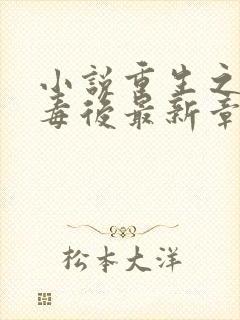 小說重生之
毒後最新章
松本大洋